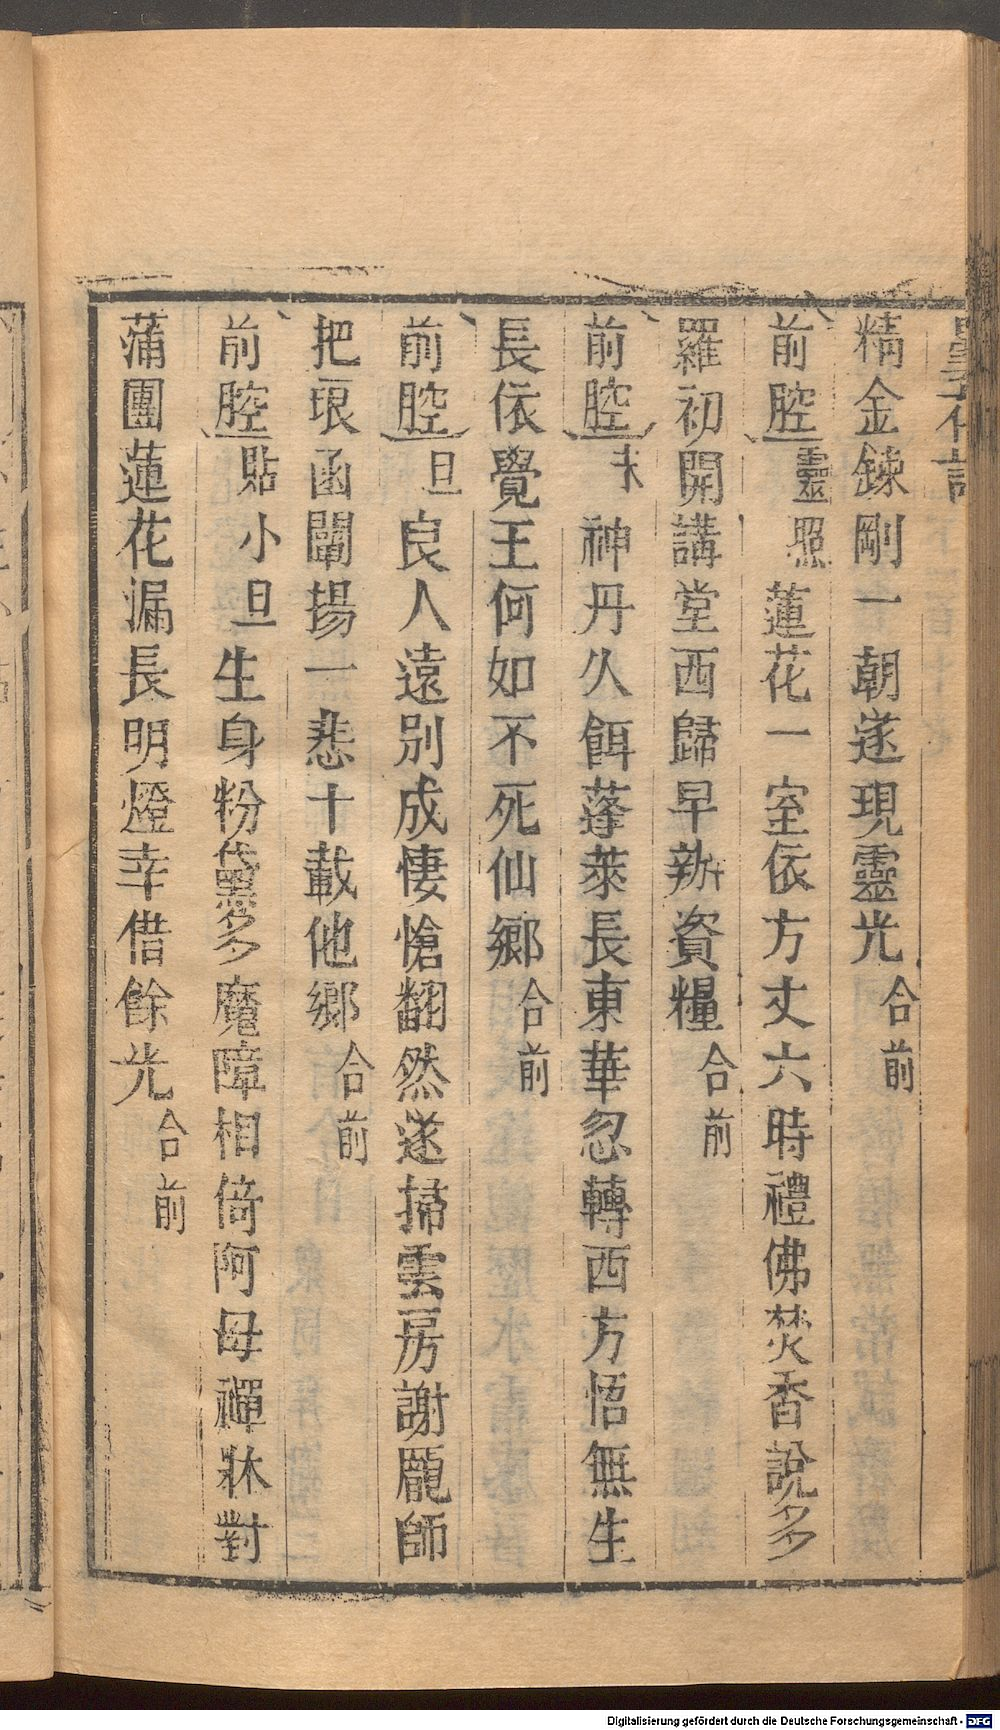 精金鍊剛一朝遂現靈光合前
前腔靈照蓮花一室依方丈六時禮佛焚香說多
羅初開講堂西歸早辦資糧合前
前腔末神丹久餌蓬萊長東華忽轉西方悟無生
長依覺王何如不死仙鄉合前
前腔旦良人遠別成悽愴翻然遂掃雲房謝龐師
把琅函闡揚一悲十載他鄉合前
前腔貼小旦生身粉黛多魔障相倚阿母禪牀對
蒲團蓮花漏長明燈幸借餘光合前
Digitalisierung gefördert durch die Deutsche Forschungsgemeinschaft - DFG